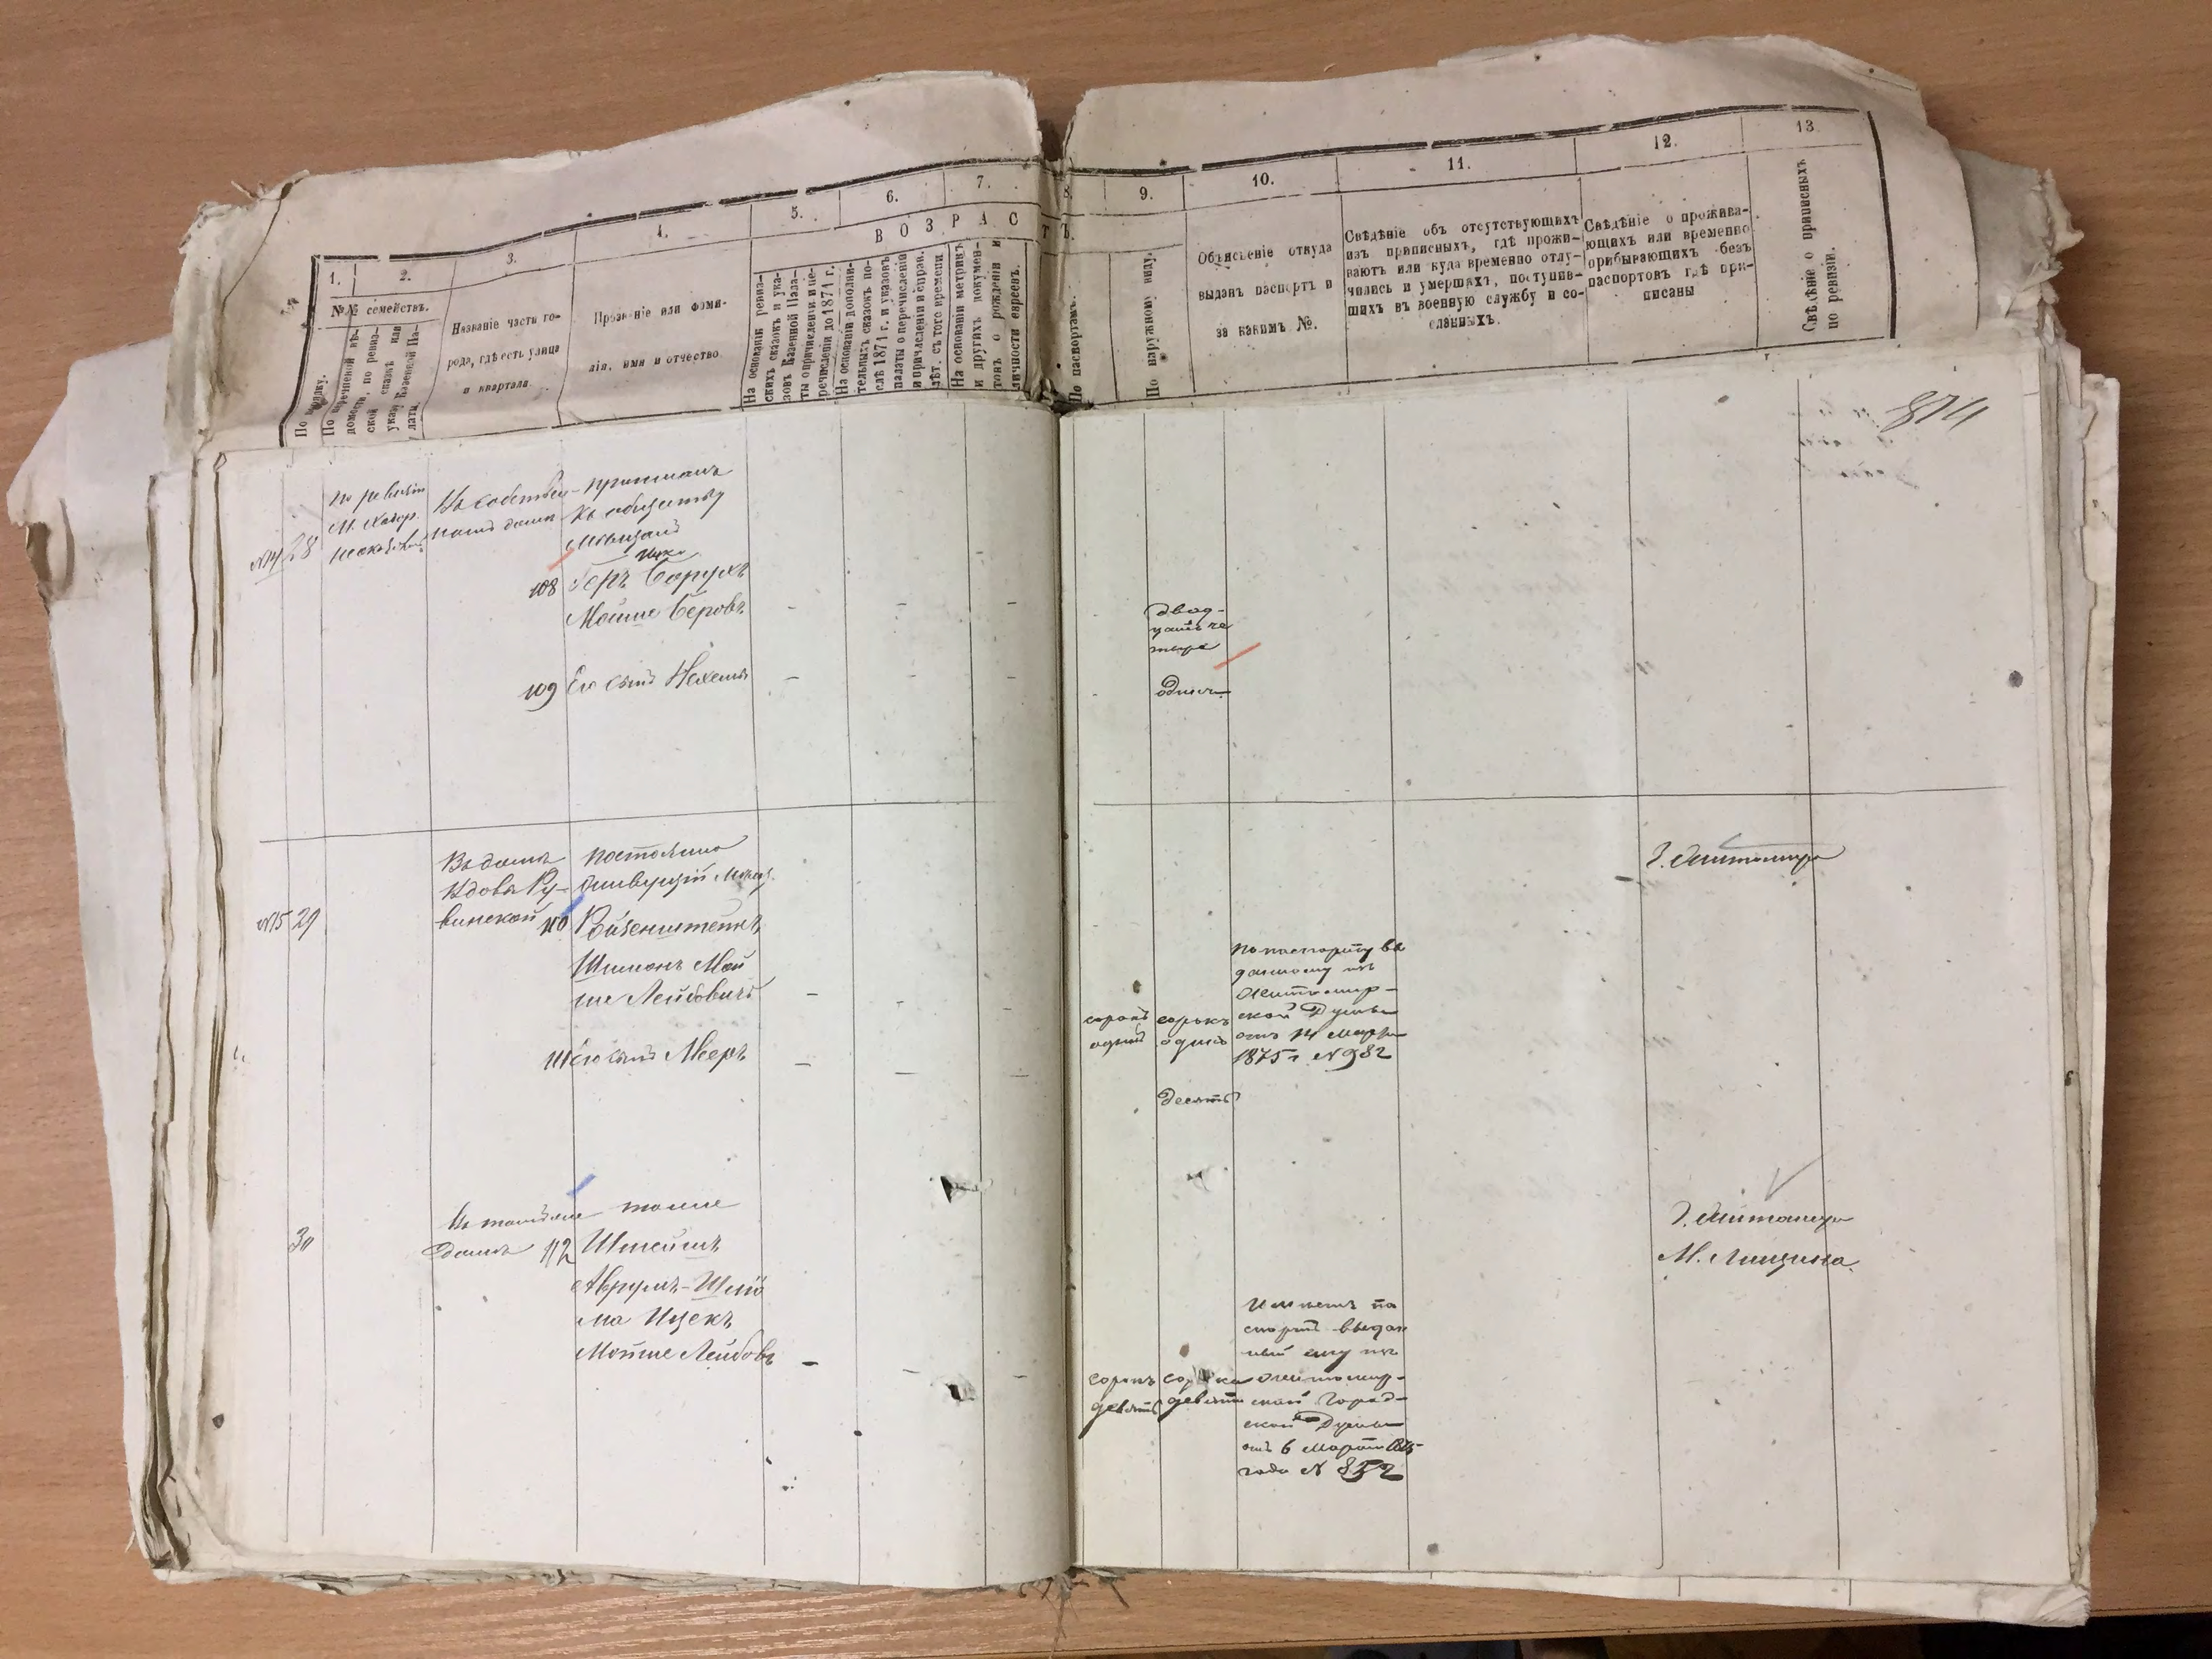 1.
2.
3.
4.
5.
6.
7.
8.
9.
10.
11.
12.
13.
№№ семействъ.
По порядку.
По пере­чневой вѣ-
домости, по ревиз-
ской сказкѣ или
указу Казенной Па-
латы.
Названіе части го-
рода, гдѣ есть улица
и квартала.
Прозваніе или фами-
лія, имя и отчество.
ВОЗРАСТЪ.
На основаніи ревиз-
скихъ сказокъ и ука-
зовъ Казенной Пала-
ты о причисленіи и пе-
речисленіи до 1871 г.
На основаніи дополни-
тельныхъ сказокъ по-
слѣ 1871 г. и указовъ
палаты о перечисленіи
и причисленіи и справ.
лѣт. съ того времени.
На основаніи метрикъ
и другихъ докумен-
товъ о рожденіи и
личности евреевъ.
По паспортамъ.
По наружному виду.
Объясненіе откуда
выданъ паспортъ и
за какимъ №.
Свѣдѣніе объ отсутствующихъ
изъ приписныхъ, гдѣ прожи-
ваютъ или куда временно отлу-
чились и умершихъ, поступив-
шихъ въ военную службу и со-
сланныхъ.
Свѣдѣніе о прожива-
ющихъ или временно
прибывающихъ безъ
паспортовъ гдѣ при-
писаны
Свѣдѣніе о приписныхъ
по ревизіи.
874
№14 28
по ревизіи
Въ собствен-
номъ домѣ
приписанъ
къ обществу
мѣщанъ
108 Геръ Борухъ
Мойше Беровъ
двад-
цать че
тыре
109 Его сынъ Нехемья
одинъ
№15 29
Въ домѣ
вдовы Ру-
винской
постоянно
живущій мѣщ.
110 Ройзенштейнъ
Шимонъ Мой
ше Лейбовичъ
сорокъ
одинъ
сорокъ
одинъ
по паспорту вы
данному изъ
Житомир-
ской Думы
отъ 14 Марта
1875 г. №982
г. Житомира
111 Его сынъ Мееръ
десять
30
Въ томъ же
домѣ
тоже
112 Штейнъ
Аврумъ-Шлио
ма Ицекъ
Мойше Лейбовъ
сорокъ
девять
сорокъ
девять
Имѣетъ па
спортъ выдан
ный ему изъ
Житомир-
ской Город-
ской Думы
отъ 6 Марта 1875
года № 852
г. Житомира
М. Лищина.